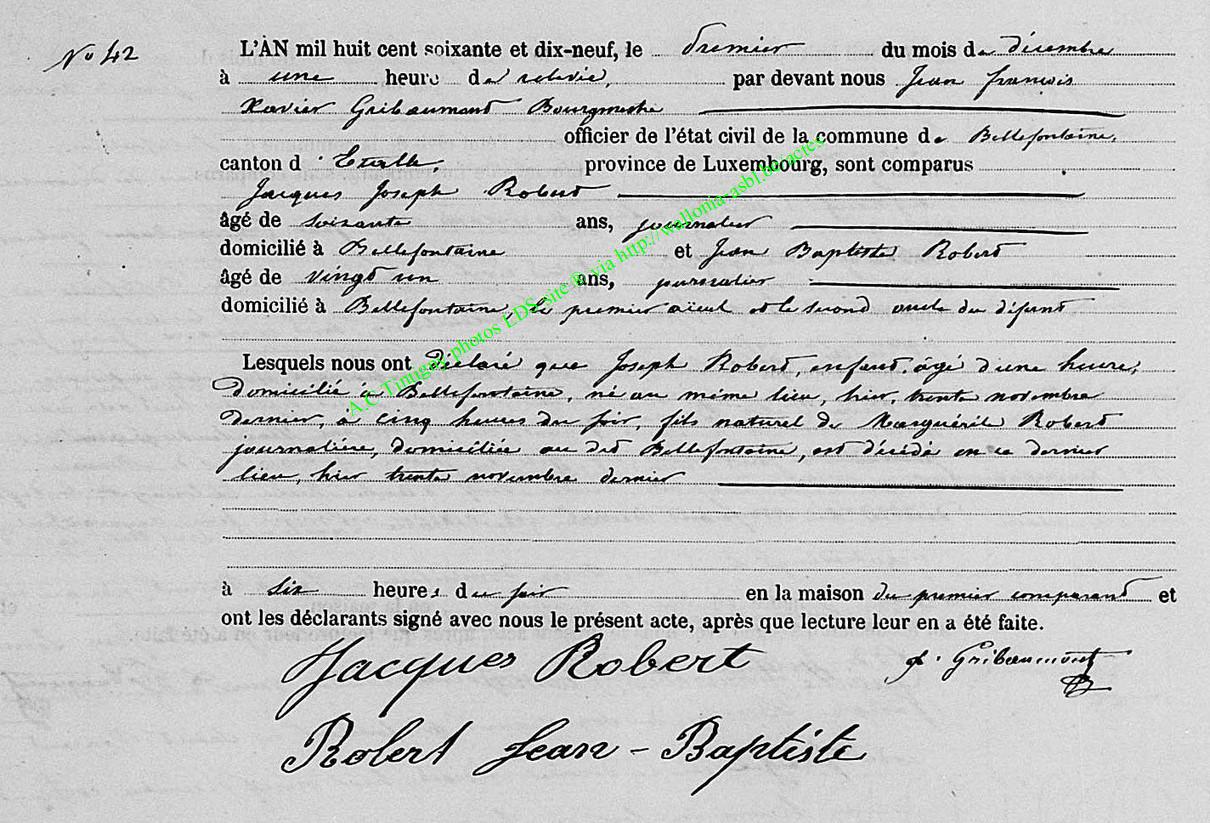 No 42
L'AN mil huit cent soixante et dix-neuf, le premier du mois de décembre
à une heure de relevée, par devant nous Jean françois
Xavier Gribaumont Bourgmestre
officier de l'état civil de la commune de Bellefontaine,
canton d'Etalle, province de Luxembourg, sont comparus
Jacques Joseph Robert
âgé de soixante ans, journalier
domicilié à Bellefontaine et Jean Baptiste Robert
âgé de vingt un ans, journalier
domicilié à Bellefontaine, le premier aïeul et le second oncle du défunt
Lesquels nous ont déclaré que Joseph Robert, enfant, âgé d'une heure,
domicilié à Bellefontaine, né au même lieu, hier, trente novembre
dernier, à cinq heures du soir, fils naturel de Marguérite Robert
journalière, domiciliée au dit Bellefontaine, est décédé en ce dernier
lieu, hier trente novembre dernier
à six heures du soir en la maison du premier comparant et
ont les déclarants signé avec nous le présent acte, après que lecture leur en a été faite.
Jacques Robert f. Gribaumont
Robert Jean-Baptiste
A.C Tintigny photos EDS, site © via http://wallomar.asbl.be/acres